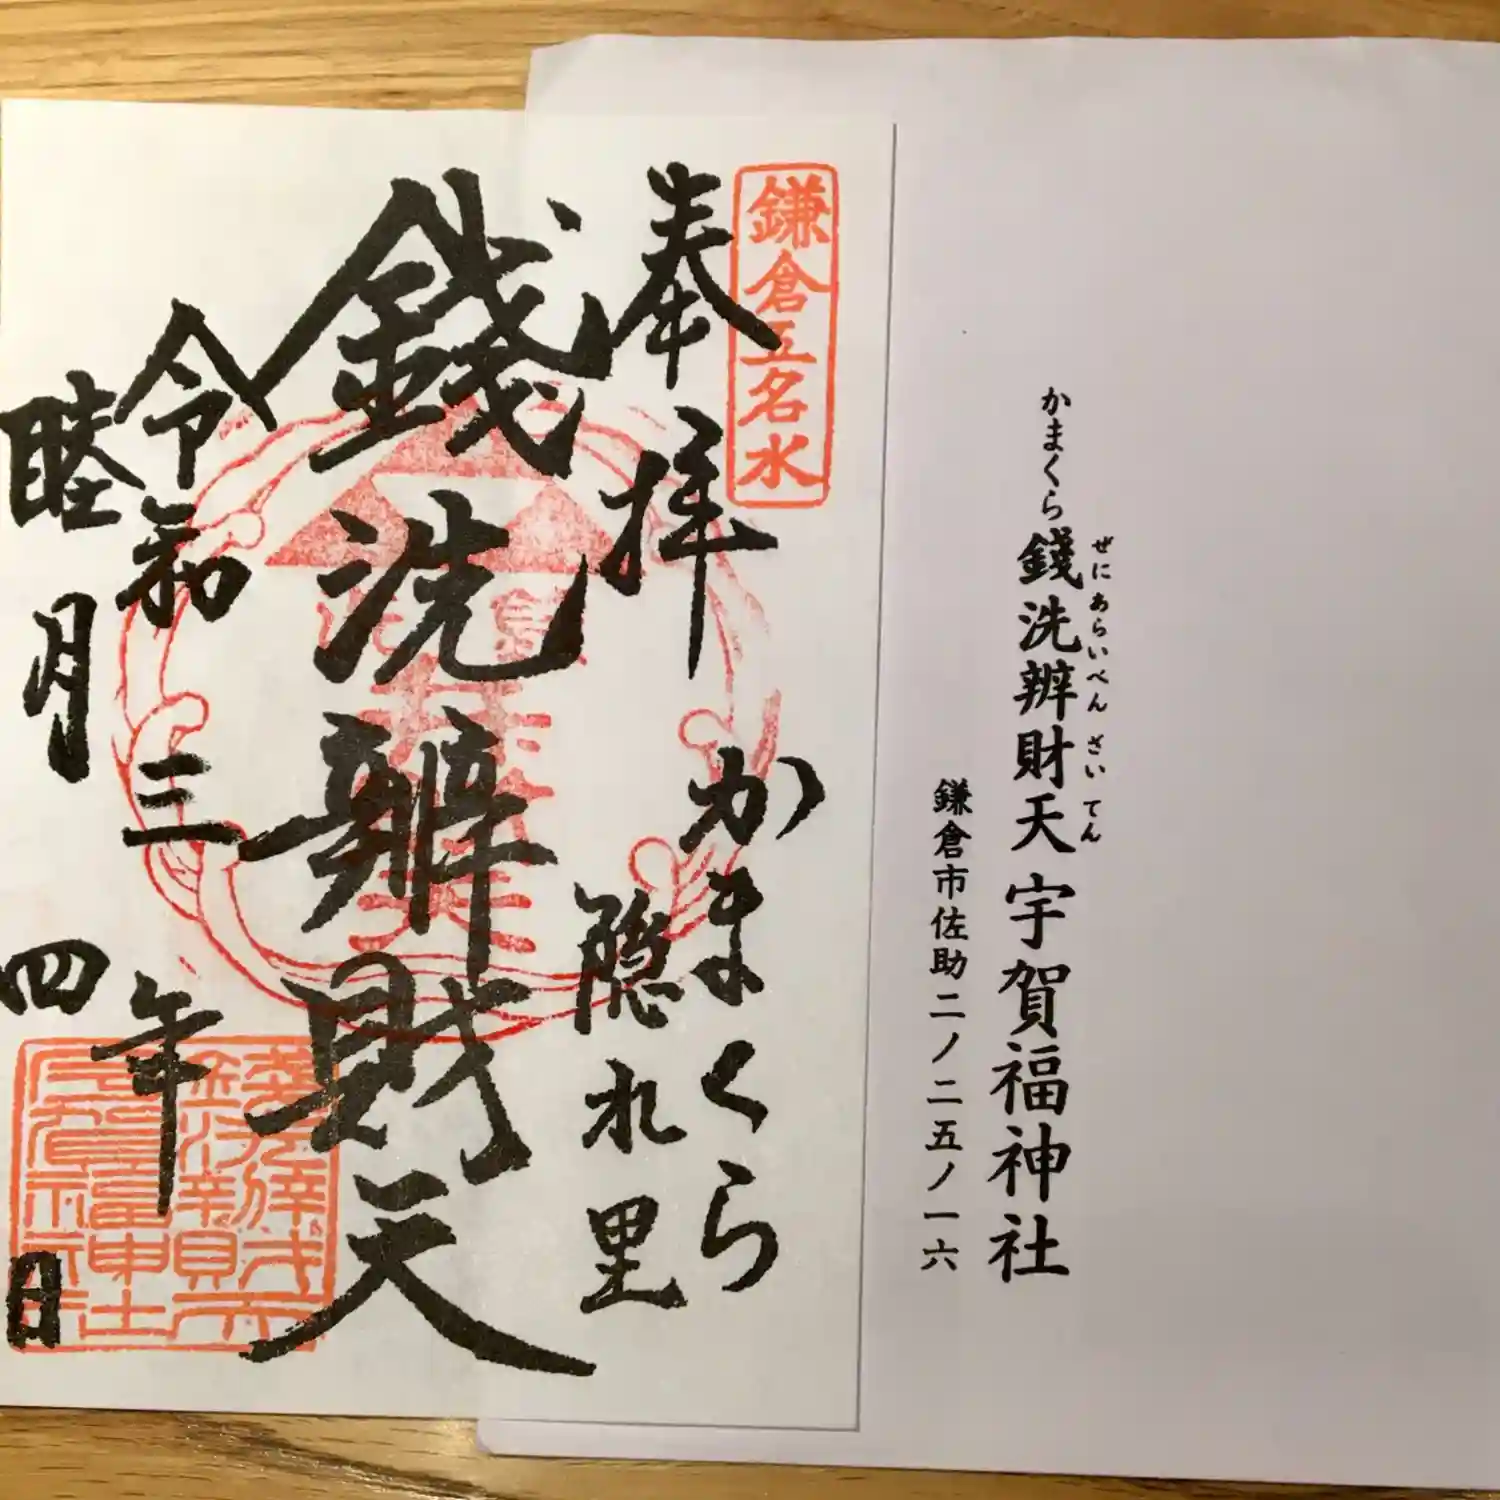 かまくら銭洗辨財天 宇賀福神社
ぜにあらいべんざいてん
鎌倉市佐助二ノ二五ノ一六
鎌倉五名水
奉拝
かまくら
隠れ里
銭洗辨財天
令和三年
睦月四日